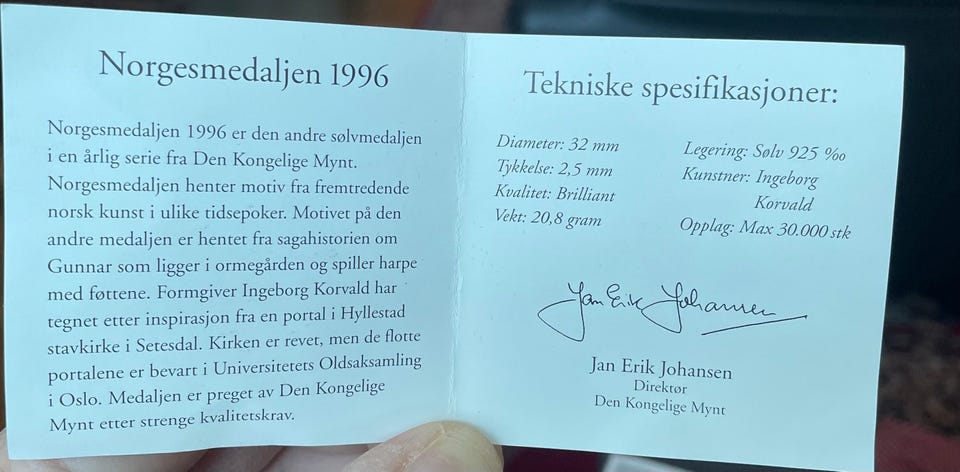 Norgesmedaljen 1996
Norgesmedaljen 1996 er den andre sølvmedaljen
i en årlig serie fra Den Kongelige Mynt.
Norgesmedaljen henter motiv fra fremtredende
norsk kunst i ulike tidsepoker. Motivet på den
andre medaljen er hentet fra sagahistorien om
Gunnar som ligger i ormegården og spiller harpe
med føttene. Formgiver Ingeborg Korvald har
tegnet etter inspirasjon fra en portal i Hyllestad
stavkirke i Setesdal. Kirken er revet, men de flotte
portalene er bevart i Universitetets Oldsaksamling
i Oslo. Medaljen er preget av Den Kongelige
Mynt etter strenge kvalitetskrav.
Tekniske spesifikasjoner:
Diameter: 32 mm
Tykkelse: 2,5 mm
Kvalitet: Brilliant
Vekt: 20,8 gram
Legering: Sølv 925 ‰
Kunstner: Ingeborg
Korvald
Opplag: Max 30.000 stk
Jan Erik Johansen
Jan Erik Johansen
Direktør
Den Kongelige Mynt